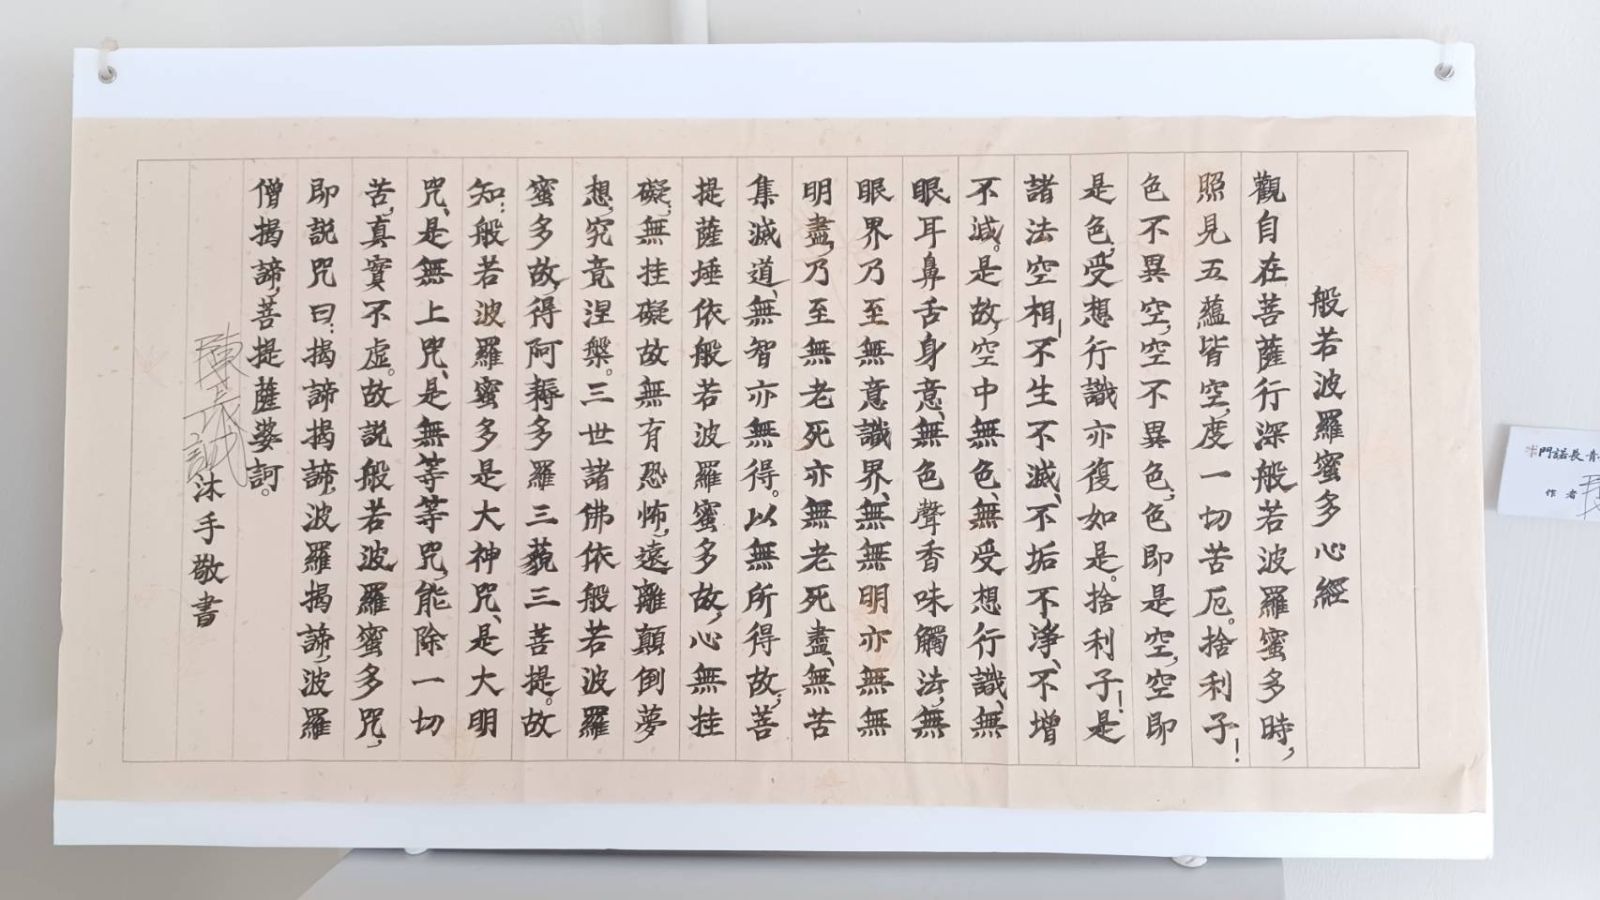 般若波羅蜜多心經
觀自在菩薩行深般若波羅蜜多時,
照見五蘊皆空,度一切苦厄。捨利子!
色不異空,空不異色,色即是空,空即
是色,受想行識亦復如是。捨利子!是
諸法空相,不生不滅、不垢不淨、不增
不減。是故,空中無色、無受想行識、無
眼耳鼻舌身意、無色聲香味觸法,無
眼界乃至無意識界、無無明亦無無
明盡,乃至無老死亦無老死盡、無苦
集滅道、無智亦無得。以無所得故,菩
提薩埵依般若波羅蜜多故,心無挂
礙,無挂礙故無有恐怖,遠離顛倒夢
想,究竟涅槃。三世諸佛依般若波羅
蜜多故,得阿耨多羅三藐三菩提。故
知:般若波羅蜜多是大神咒、是大明
咒、是無上咒、是無等等咒,能除一切
苦,真實不虛。故説般若波羅蜜多咒,
即説咒曰:揭諦揭諦,波羅揭諦,波羅
僧揭諦,菩提薩婆訶。
沐手敬書
門諾長青
作者